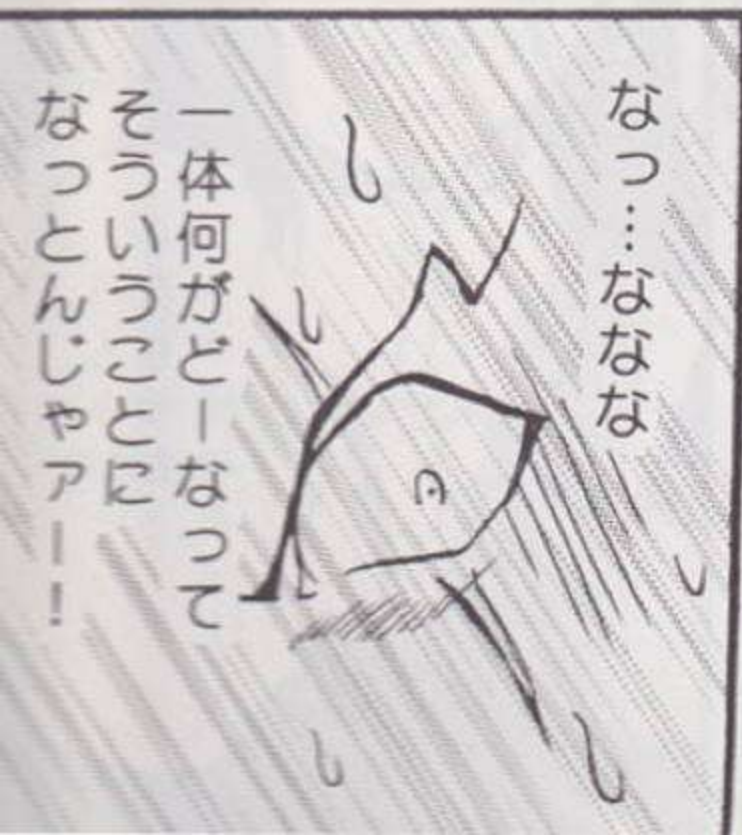 なっ…ななな
一体何がどーなって
そういうことに
なっとんじゃァー！